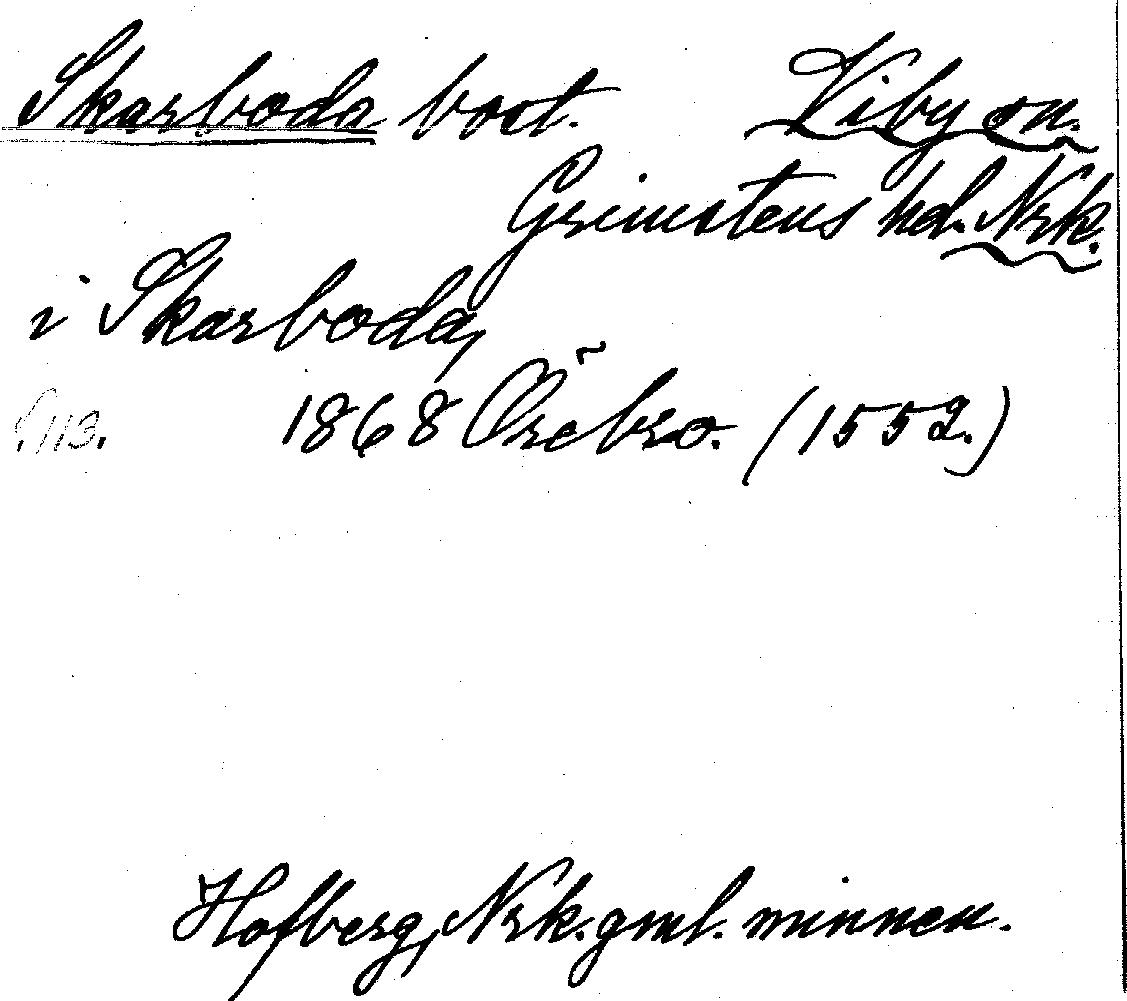 Skarboda bost. Viby sn.
Grimstens hd. Nrk.
i Skarboda,
S. 113. 1868 Örebro. (1552.)
Hofberg, Nrk. gml. minnen.